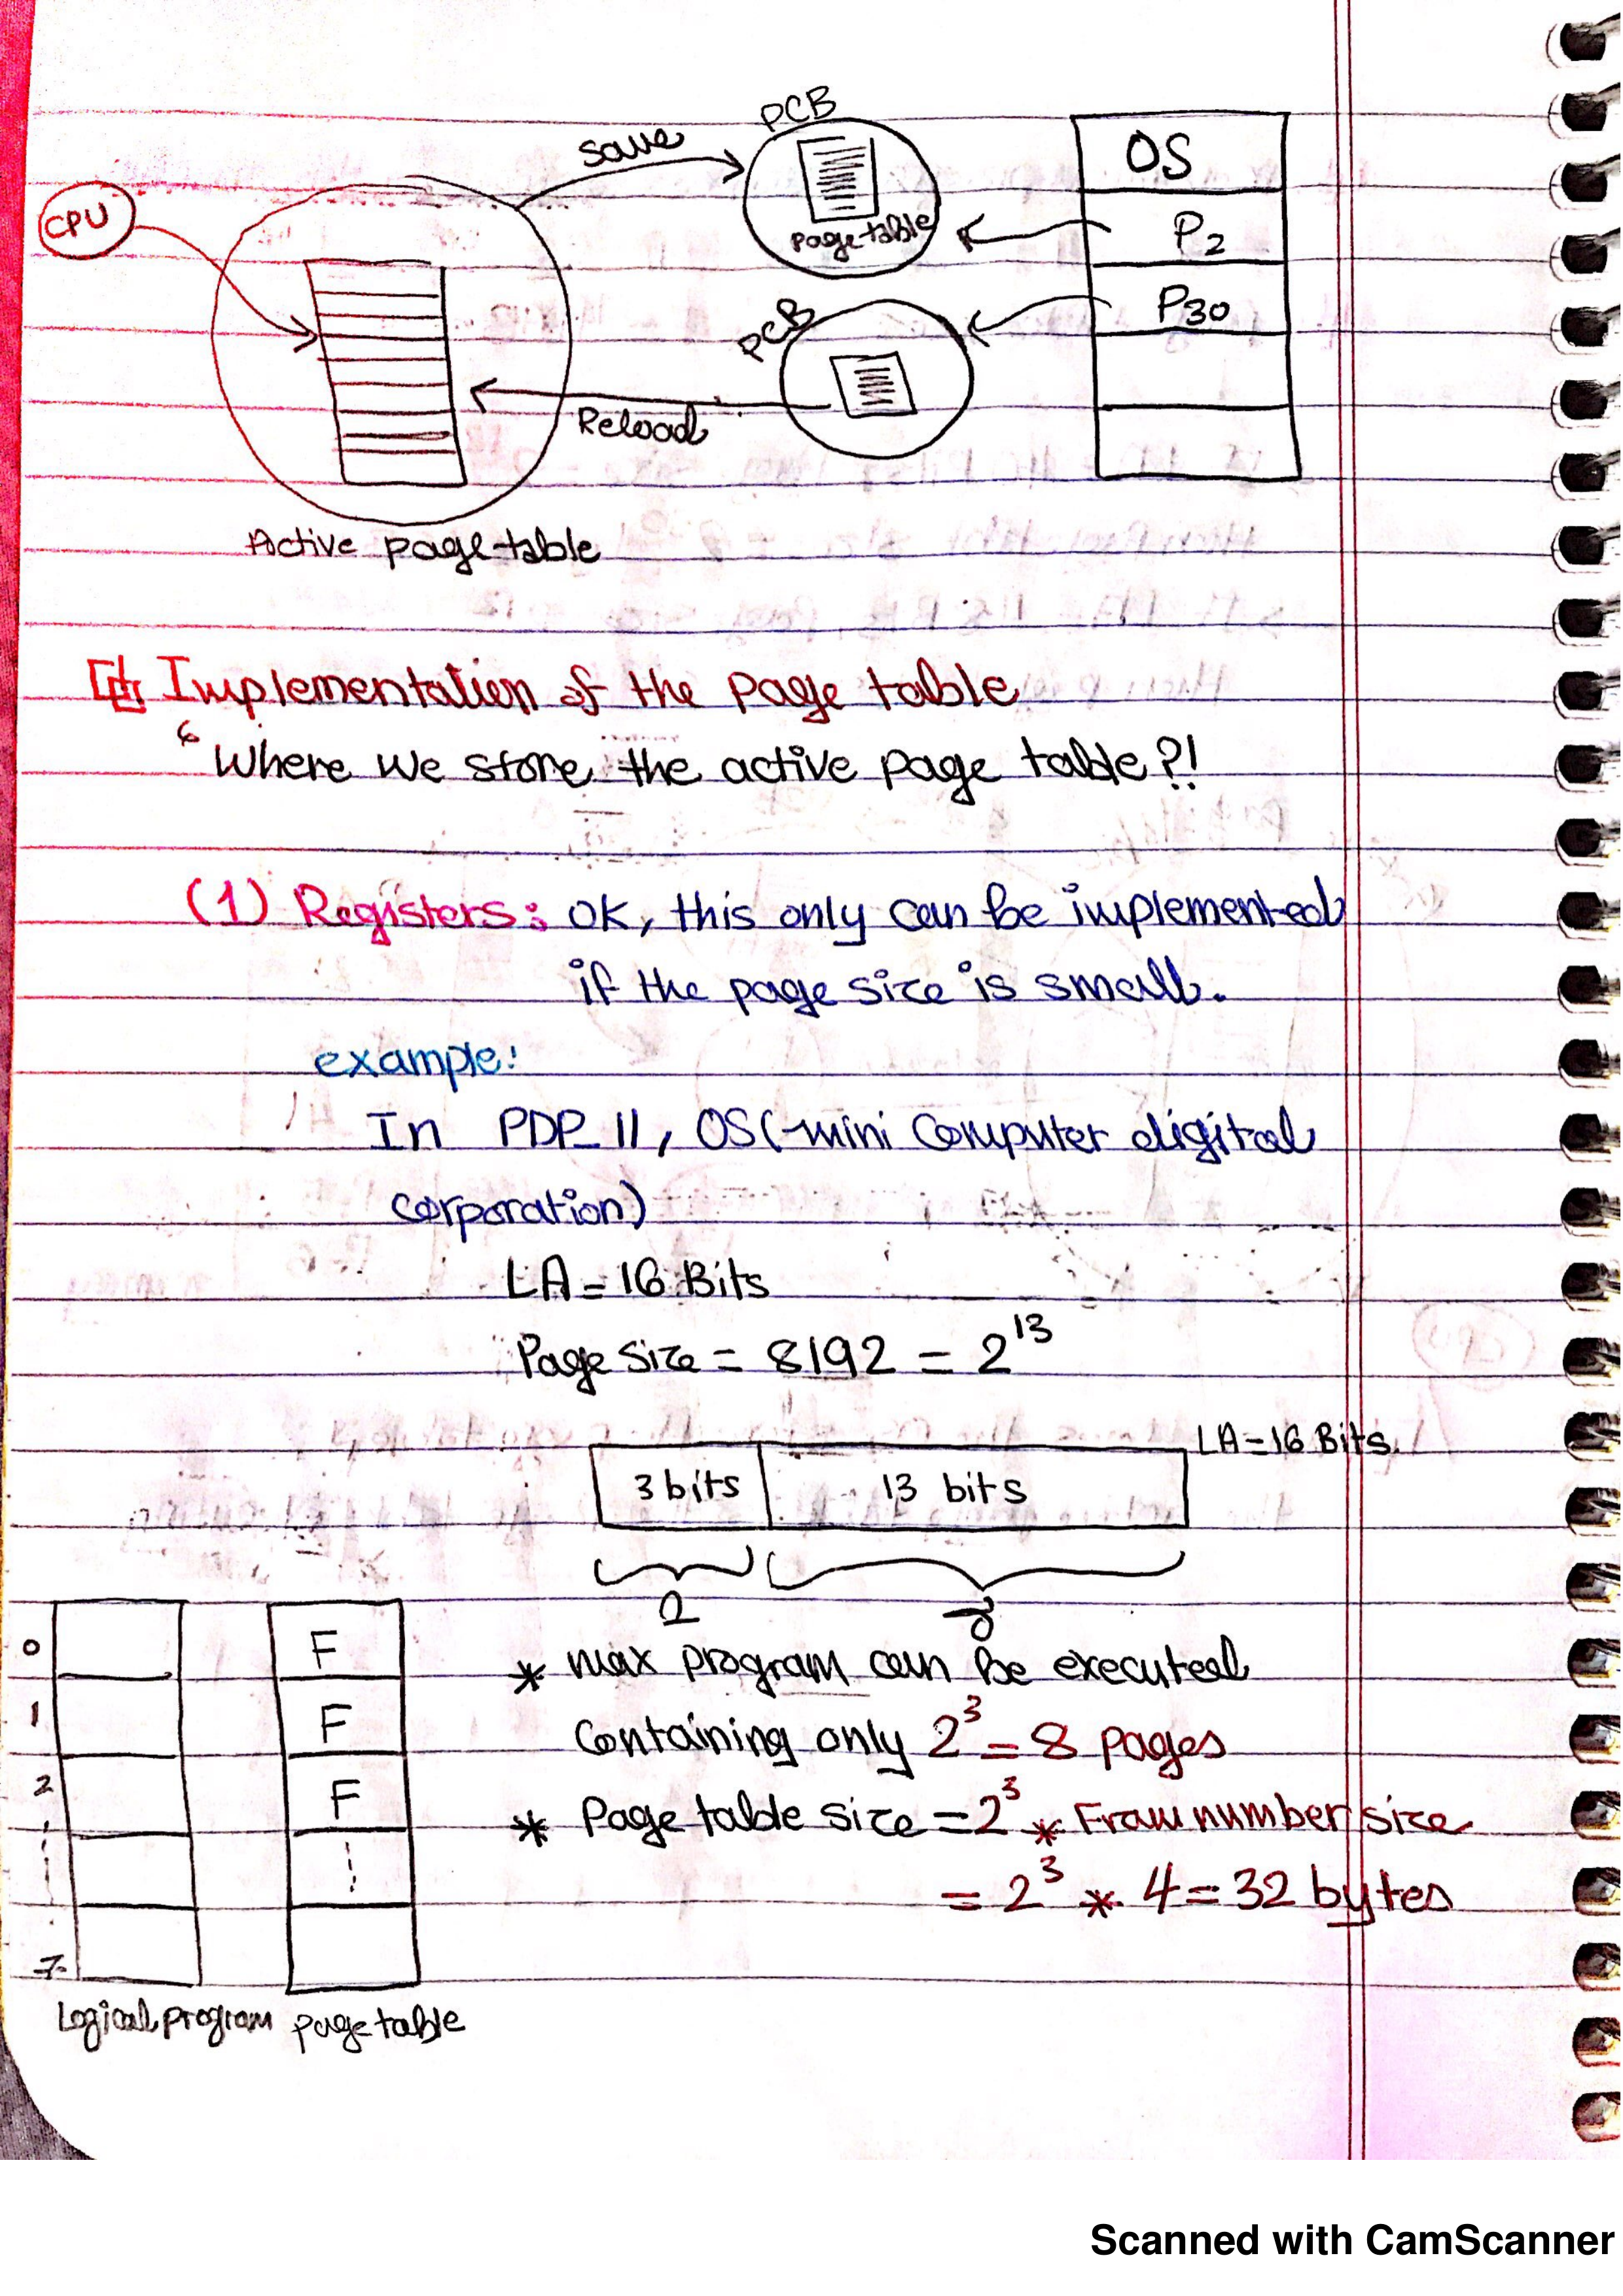 PCB
OS
save
CPU
page table
P2
P30
PCB
Reload
Active page table
Implementation of the page table
Where we store the active page table?!
(1) Registers: OK, this only can be implemented
if the page size is small.
example:
In PDP_11, OS(-mini Computer digital
corporation)
LA = 16 Bits
Page size = 8192 = 2^13
LA = 16 Bits
3 bits 13 bits
0 F
* max program can be executed
1 F
Containing only 2^3 = 8 pages
2 F
* Page table size = 2^3 * Fram number size
= 2^3 * 4 = 32 bytes
7
Logical program page table
Scanned with CamScanner